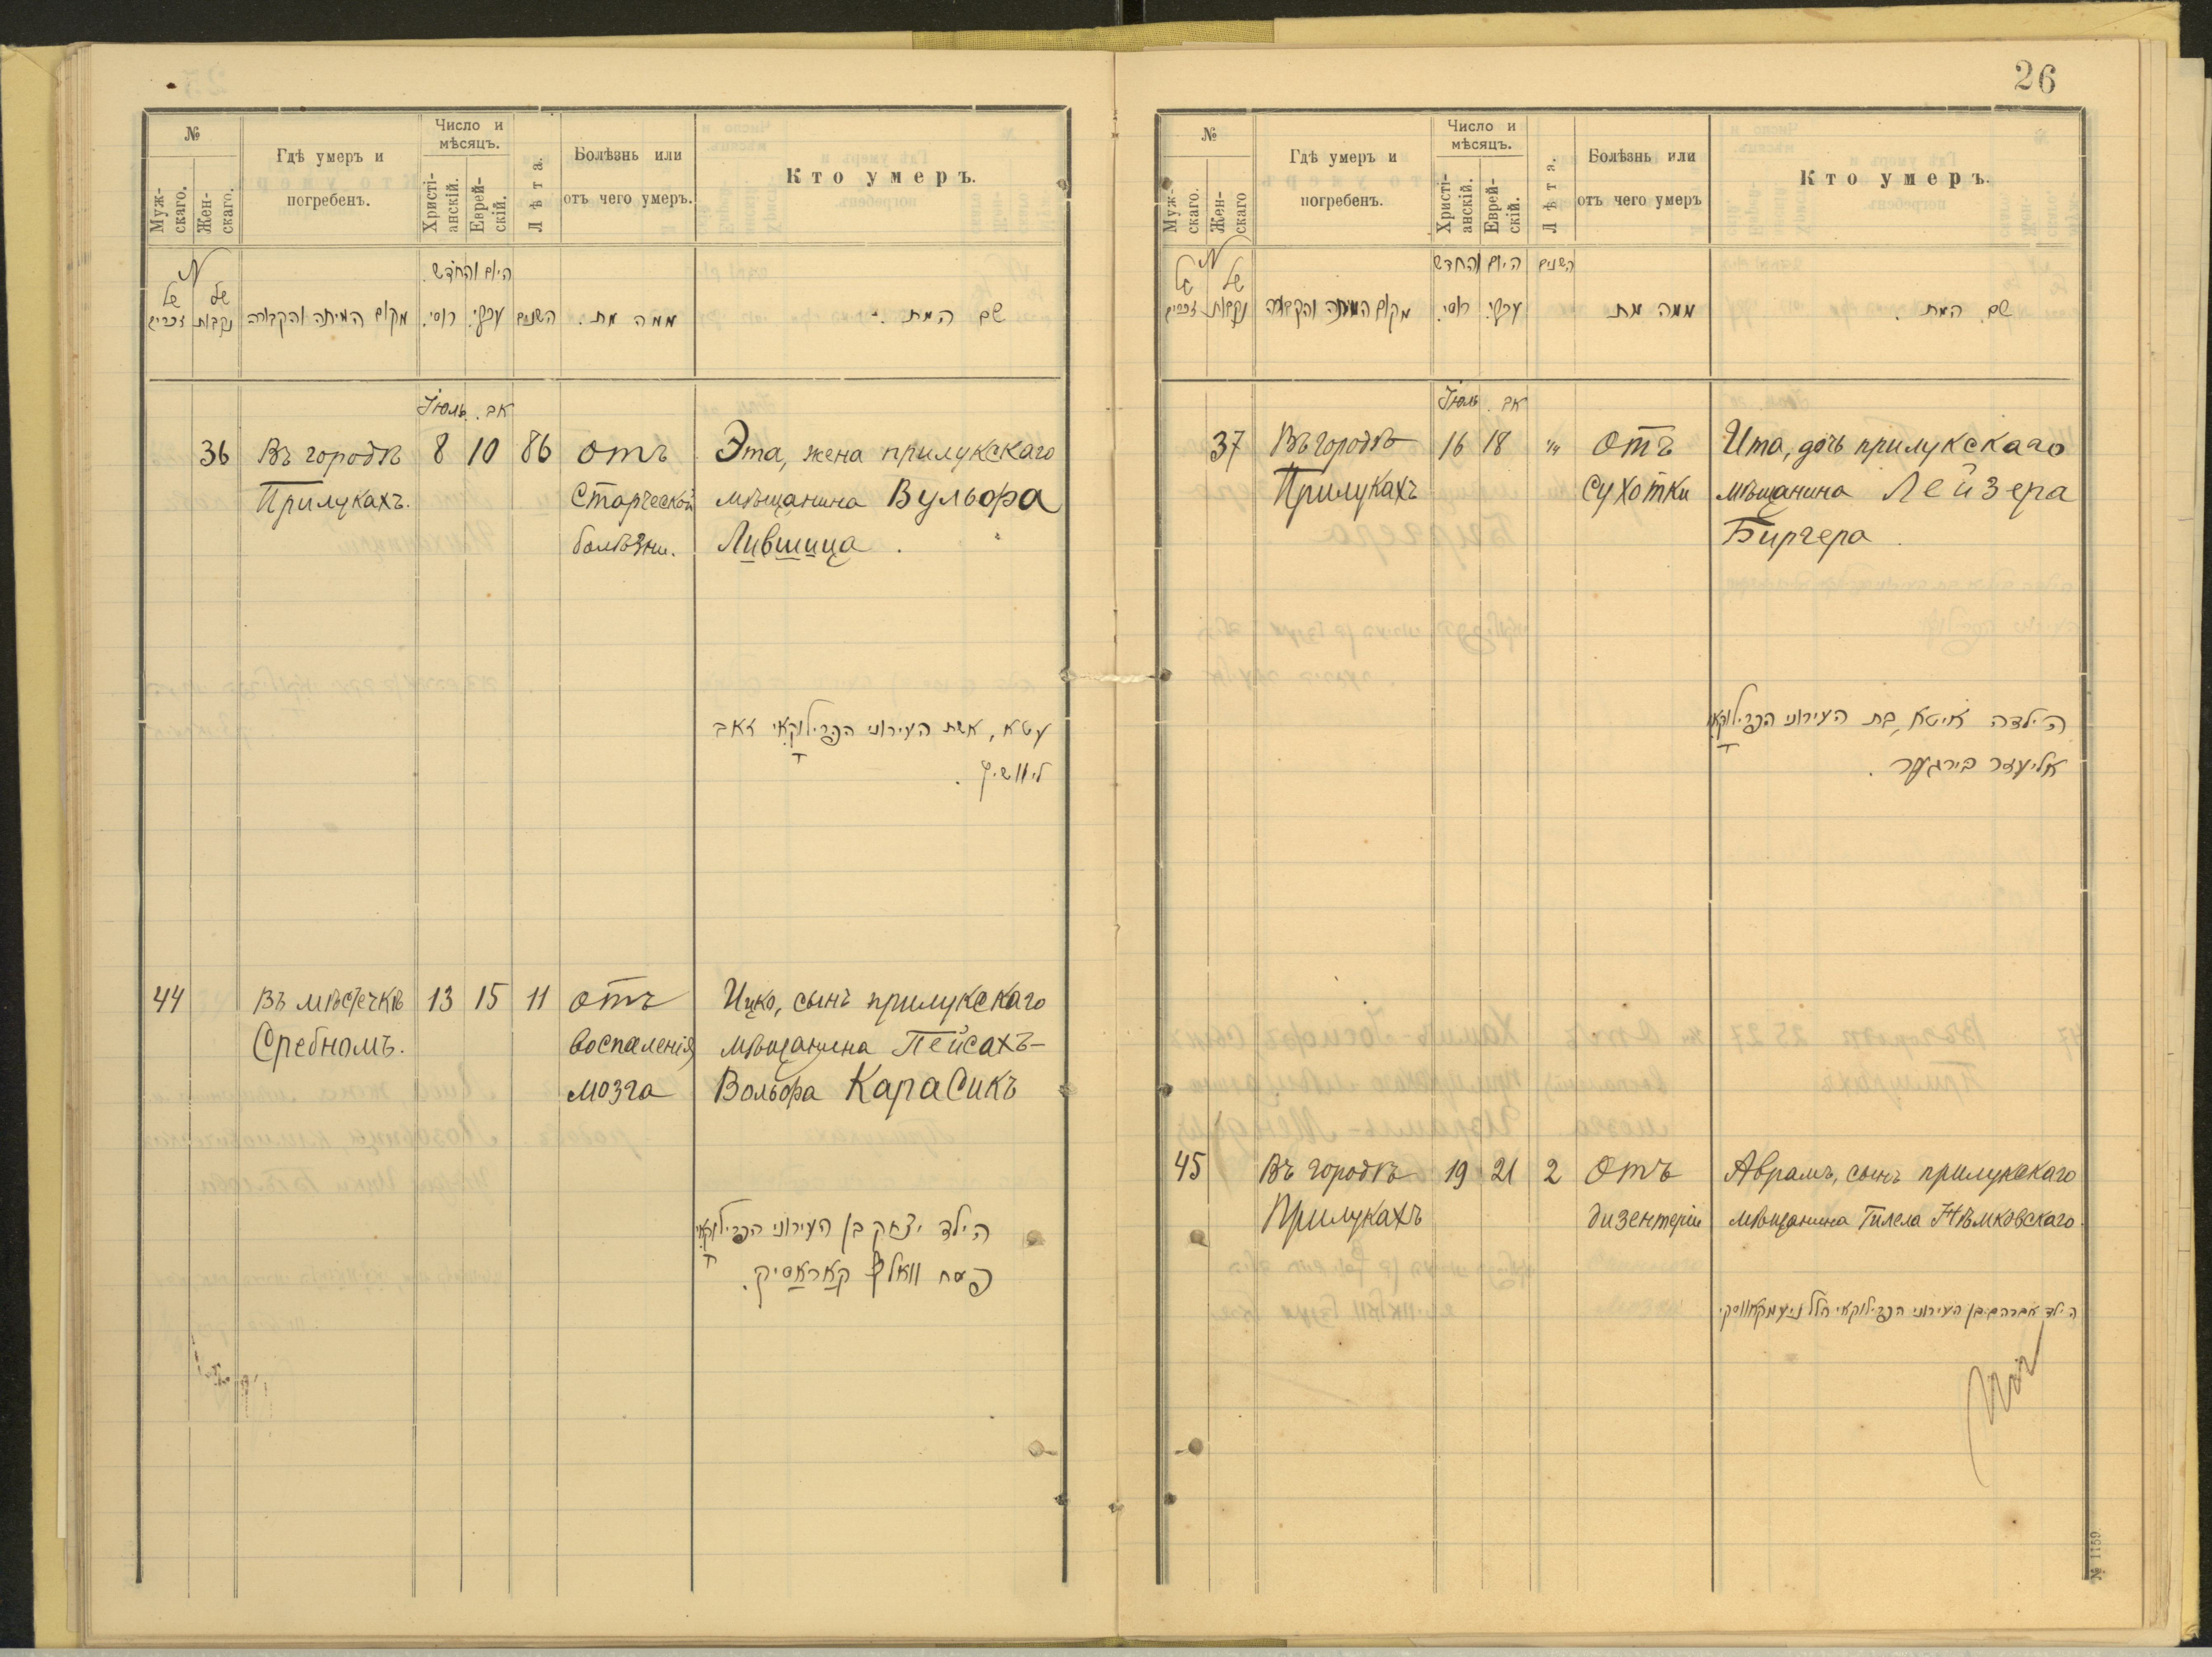 №
Муж-
скаго.
Жен-
скаго.
Гдѣ умеръ и
погребенъ.
Число и
мѣсяцъ.
Христі-
анскій.
Еврей-
скій.
Лѣта.
Болѣзнь или
отъ чего умеръ.
Кто умеръ.
№
של
זכרים
של
נקבות
מקום המיתה והקבורה
היום והחדש
רוסי.
עברי.
השנים
ממה מת.
שם המת.
Іюль. אב
36 Въ городѣ 8 10 86 отъ Эта, жена прилукскаго
Прилукахъ. Старческой мѣщанина Вульфа
болѣзни. Лившица.
עטא, אשת העירוני הפרילוקאי זאב
ליוושיץ.
44 Въ мѣстечкѣ 13 15 11 отъ Ицко, сынъ прилукскаго
Сребномъ. воспаленія мѣщанина Пейсахъ-
мозга Вольфа Карасикъ
הילד יצחק בן העירוני הפרילוקאי
פסח וואלף קאראסיק.
26
№
Муж-
скаго.
Жен-
скаго
Гдѣ умеръ и
погребенъ.
Число и
мѣсяцъ.
Христі-
анскій.
Еврей-
скій.
Лѣта.
Болѣзнь или
отъ чего умеръ
Кто умеръ.
№
של
זכרים
של
נקבות
מקום המיתה והקבורה
היום והחדש
רוסי.
עברי.
השנים
ממה מת
שם המת.
Іюль. אב
37 Въ городѣ 16 18 отъ Ита, дочь прилукскаго
Прилукахъ сухотки мѣщанина Лейзера
Биргера.
הילדה איטא, בת העירוני הפרילוקאי
אליעזר בירגער.
45 Въ городѣ 19 21 2 Отъ Аврамъ, сынъ прилукскаго
Прилукахъ дизентеріи мѣщанина Гилела Нѣмковскаго.
הילד אברהם בן העירוני הפרילוקאי הלל ניעמקאווסקי
№ 1159.